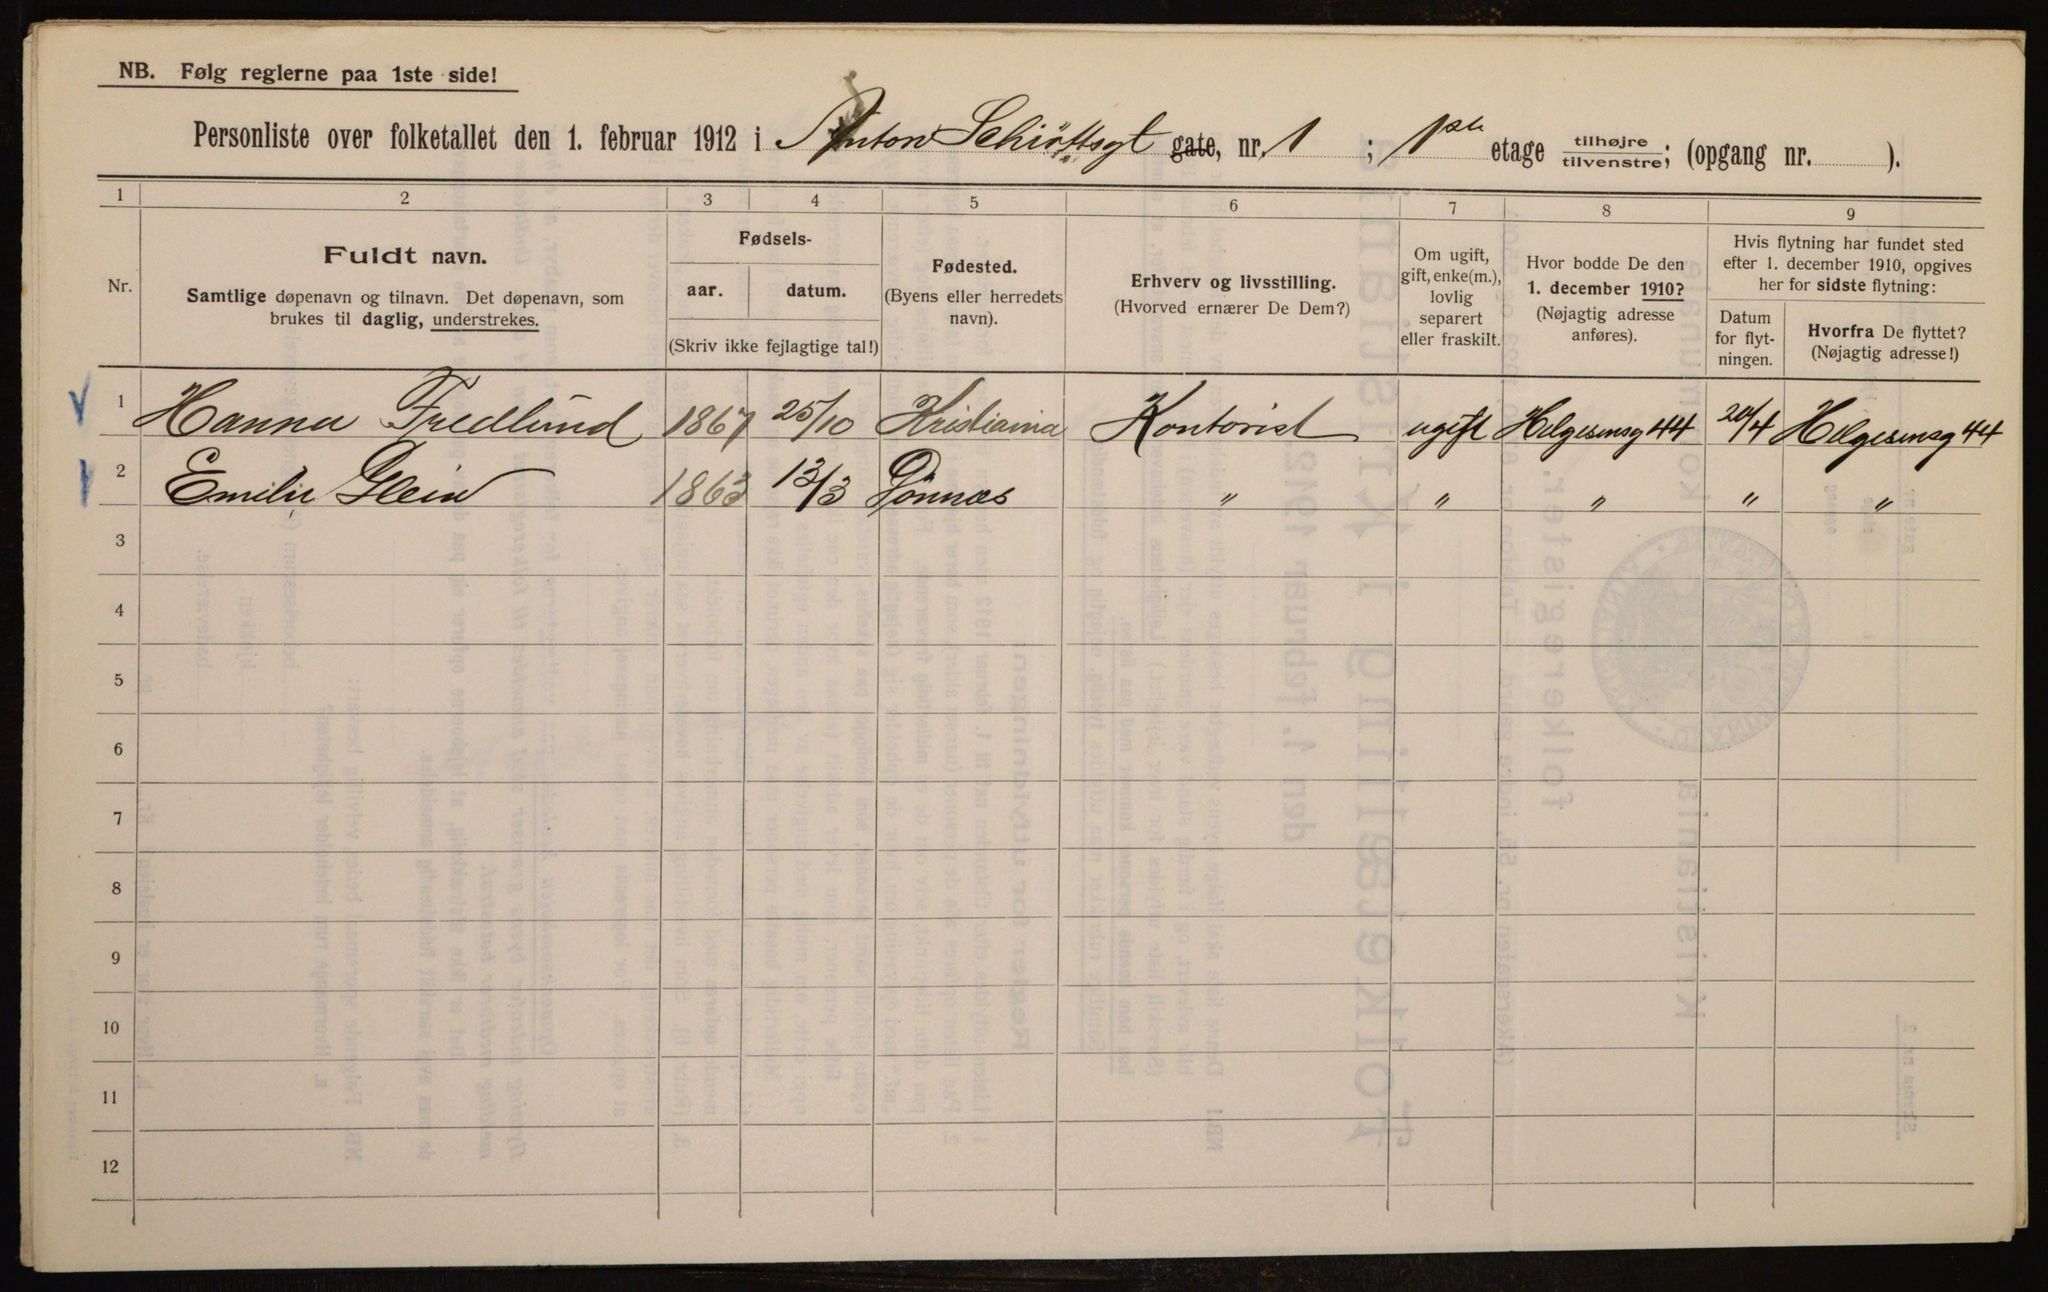 NB. Følg reglerne paa 1ste side!
Personliste over folketallet den 1. februar 1912 i Anton Schiøttsgt gate, nr. 1 ; 1ste etage tilhøjre tilvenstre; (opgang nr. ).
1 2 3 4 5 6 7 8 9
Nr.
Fuldt navn.
Samtlige døpenavn og tilnavn. Det døpenavn, som
brukes til daglig, understrekes.
Fødsels-
aar. datum.
(Skriv ikke fejlagtige tal!)
Fødested.
(Byens eller herredets
navn).
Erhverv og livsstilling.
(Hvorved ernærer De Dem?)
Om ugift,
gift, enke(m.),
lovlig
separert
eller fraskilt.
Hvor bodde De den
1. december 1910?
(Nøjagtig adresse
anføres).
Hvis flytning har fundet sted
efter 1. december 1910, opgives
her for sidste flytning:
Datum
for flyt-
ningen.
Hvorfra De flyttet?
(Nøjagtig adresse!)
1 Hanna Fredlund 1867 25/10 Kristiania Kontorist ugift Helgesensg 44 20/4 Helgesensg 44
2 Emilie Glein 1863 13/3 Dönnes " " " " "
3
4
5
6
7
8
9
10
11
12